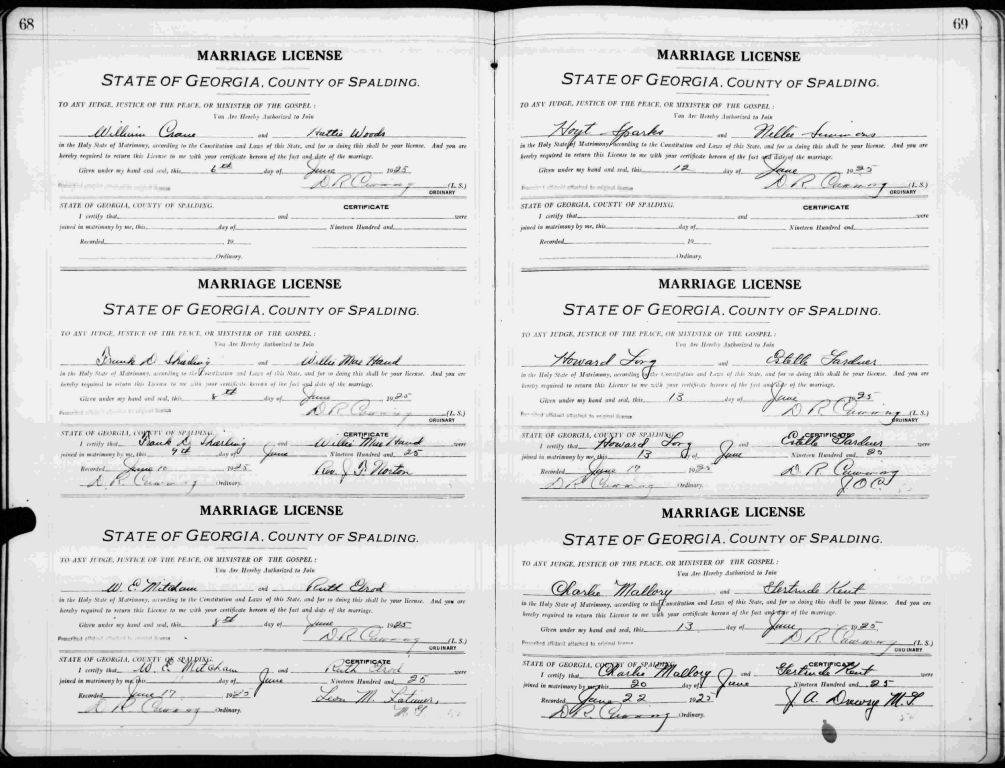 68
MARRIAGE LICENSE
STATE OF GEORGIA, COUNTY OF SPALDING.
TO ANY JUDGE, JUSTICE OF THE PEACE, OR MINISTER OF THE GOSPEL:
You Are Hereby Authorized to Join
William Crane and Hattie Woods
in the Holy State of Matrimony, according to the Constitution and Laws of this State, and for so doing this shall be your license. And you are
hereby required to return this License to me with your certificate hereon of the fact and date of the marriage.
Given under my hand and seal, this 6th day of June 1925
D R Cumming (L. S.)
Prescribed affidavit attached to original license
ORDINARY
STATE OF GEORGIA, COUNTY OF SPALDING. CERTIFICATE
I certify that and were
joined in matrimony by me, this day of Nineteen Hundred and
Recorded 19
Ordinary.
MARRIAGE LICENSE
STATE OF GEORGIA, COUNTY OF SPALDING.
TO ANY JUDGE, JUSTICE OF THE PEACE, OR MINISTER OF THE GOSPEL:
You Are Hereby Authorized to Join
Frank D. and Willie Mae Hand
in the Holy State of Matrimony, according to the Constitution and Laws of this State, and for so doing this shall be your license. And you are
hereby required to return this License to me with your certificate hereon of the fact and date of the marriage.
Given under my hand and seal, this 8th day of June 1925
D R Cumming (L. S.)
Prescribed affidavit attached to original license
ORDINARY
STATE OF GEORGIA, COUNTY OF SPALDING. CERTIFICATE
I certify that Frank D. and Willie Mae Hand were
joined in matrimony by me, this 9th day of June Nineteen Hundred and 25
Recorded June 10 1925 Rev. J. F. Norton
D. R. Cumming Ordinary.
MARRIAGE LICENSE
STATE OF GEORGIA, COUNTY OF SPALDING.
TO ANY JUDGE, JUSTICE OF THE PEACE, OR MINISTER OF THE GOSPEL:
You Are Hereby Authorized to Join
W. E. Mitcham and Ruth Elrod
in the Holy State of Matrimony, according to the Constitution and Laws of this State, and for so doing this shall be your license. And you are
hereby required to return this License to me with your certificate hereon of the fact and date of the marriage.
Given under my hand and seal, this 8th day of June 1925
D R Cumming (L. S.)
Prescribed affidavit attached to original license
ORDINARY
STATE OF GEORGIA, COUNTY OF SPALDING. CERTIFICATE
I certify that W. E. Mitcham and Ruth Elrod were
joined in matrimony by me, this day of June Nineteen Hundred and 25
Recorded June 17 1925 Leon M. Latimer,
D. R. Cumming Ordinary. M. G.
69
MARRIAGE LICENSE
STATE OF GEORGIA, COUNTY OF SPALDING.
TO ANY JUDGE, JUSTICE OF THE PEACE, OR MINISTER OF THE GOSPEL:
You Are Hereby Authorized to Join
Hoyt Sparks and Nellie Simmons
in the Holy State of Matrimony, according to the Constitution and Laws of this State, and for so doing this shall be your license. And you are
hereby required to return this License to me with your certificate hereon of the fact and date of the marriage.
Given under my hand and seal, this 12 day of June 1925
D R Cumming (L. S.)
Prescribed affidavit attached to original license
ORDINARY
STATE OF GEORGIA, COUNTY OF SPALDING. CERTIFICATE
I certify that and were
joined in matrimony by me, this day of Nineteen Hundred and
Recorded 19
Ordinary.
MARRIAGE LICENSE
STATE OF GEORGIA, COUNTY OF SPALDING.
TO ANY JUDGE, JUSTICE OF THE PEACE, OR MINISTER OF THE GOSPEL:
You Are Hereby Authorized to Join
Howard Long and Estelle Gardner
in the Holy State of Matrimony, according to the Constitution and Laws of this State, and for so doing this shall be your license. And you are
hereby required to return this License to me with your certificate hereon of the fact and date of the marriage.
Given under my hand and seal, this 13 day of June 1925
D R Cumming (L. S.)
Prescribed affidavit attached to original license
ORDINARY
STATE OF GEORGIA, COUNTY OF SPALDING. CERTIFICATE
I certify that Howard Long and Estelle Gardner were
joined in matrimony by me, this 13 day of June Nineteen Hundred and 25
Recorded June 17 1925 D. R. Cumming
D R Cumming Ordinary. J. O. C.
MARRIAGE LICENSE
STATE OF GEORGIA, COUNTY OF SPALDING.
TO ANY JUDGE, JUSTICE OF THE PEACE, OR MINISTER OF THE GOSPEL:
You Are Hereby Authorized to Join
Charlie Mallory and Gertrude Kent
in the Holy State of Matrimony, according to the Constitution and Laws of this State, and for so doing this shall be your license. And you are
hereby required to return this License to me with your certificate hereon of the fact and date of the marriage.
Given under my hand and seal, this 13 day of June 1925
D R Cumming (L. S.)
Prescribed affidavit attached to original license
ORDINARY
STATE OF GEORGIA, COUNTY OF SPALDING. CERTIFICATE
I certify that Charlie Mallory and Gertrude Kent were
joined in matrimony by me, this 20 day of June Nineteen Hundred and 25
Recorded June 22 1925 J. A. Drewry M. G.
D R Cumming Ordinary.